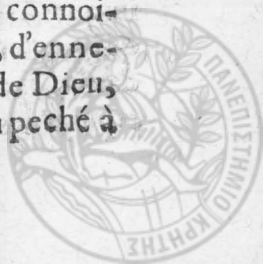 connoi-
, d'enne-
de Dieu,
peché à
ΠΑΝΕΠΙΣΤΗΜΙΟ ΚΡΗΤΗΣ